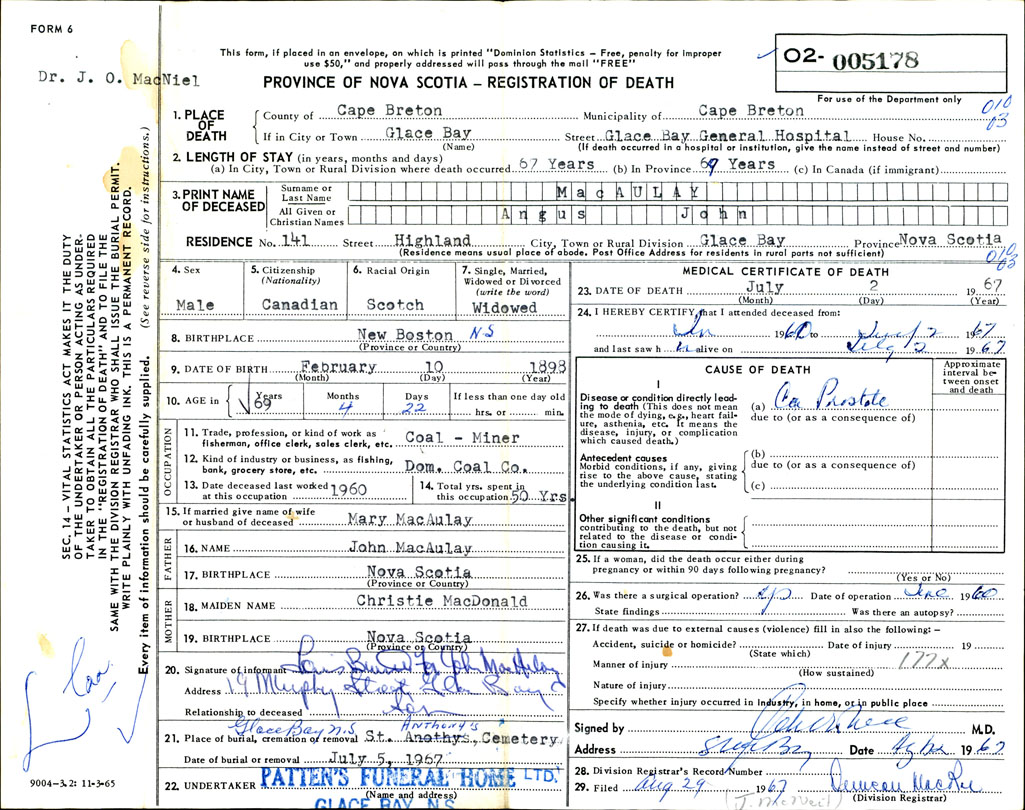 FORM 6
This form, if placed in an envelope, on which is printed "Dominion Statistics – Free, penalty for improper
use $50," and properly addressed will pass through the mail "FREE"
Dr. J. O. MacNiel
PROVINCE OF NOVA SCOTIA – REGISTRATION OF DEATH
O2- 005178
For use of the Department only
010
03
1. PLACE OF DEATH
County of Cape Breton Municipality of Cape Breton
If in City or Town Glace Bay Street Glace Bay General Hospital House No.
(Name) (If death occurred in a hospital or institution, give the name instead of street and number)
2. LENGTH OF STAY (in years, months and days)
(a) In City, Town or Rural Division where death occurred 67 Years (b) In Province 69 Years (c) In Canada (if immigrant)
3. PRINT NAME OF DECEASED
Surname or Last Name MacAULAY
All Given or Christian Names Angus John
RESIDENCE No. 141 Street Highland City, Town or Rural Division Glace Bay Province Nova Scotia
(Residence means usual place of abode. Post Office Address for residents in rural parts not sufficient)
010
03
SEC. 14 – VITAL STATISTICS ACT MAKES IT THE DUTY
OF THE UNDERTAKER OR PERSON ACTING AS UNDER-
TAKER TO OBTAIN ALL THE PARTICULARS REQUIRED
IN THE "REGISTRATION OF DEATH" AND TO FILE THE
SAME WITH THE DIVISION REGISTRAR WHO SHALL ISSUE THE BURIAL PERMIT.
WRITE PLAINLY WITH UNFADING INK. THIS IS A PERMANENT RECORD.
Every item of information should be carefully supplied. (See reverse side for instructions.)
4. Sex
Male
5. Citizenship
(Nationality)
Canadian
6. Racial Origin
Scotch
7. Single, Married,
Widowed or Divorced
(write the word)
Widowed
8. BIRTHPLACE New Boston NS
(Province or Country)
9. DATE OF BIRTH February 10 1898
(Month) (Day) (Year)
10. AGE in
Years Months Days If less than one day old
69 4 22 hrs. or min.
OCCUPATION
11. Trade, profession, or kind of work as
fisherman, office clerk, sales clerk, etc. Coal - Miner
12. Kind of industry or business, as fishing,
bank, grocery store, etc. Dom. Coal Co.
13. Date deceased last worked
at this occupation 1960
14. Total yrs. spent in
this occupation 50 Yrs.
15. If married give name of wife
or husband of deceased Mary MacAulay
FATHER
16. NAME John MacAulay
17. BIRTHPLACE Nova Scotia
(Province or Country)
MOTHER
18. MAIDEN NAME Christie MacDonald
19. BIRTHPLACE Nova Scotia
(Province or Country)
20. Signature of informant for John MacAulay
Address 19 Murphy Street Glace Bay
Relationship to deceased Son
Glace Bay N.S Anthony's
21. Place of burial, cremation or removal St. Anothys, Cemetery
Date of burial or removal July 5, 1967
22. UNDERTAKER PATTEN'S FUNERAL HOME LTD.
(Name and address)
GLACE BAY, N.S.
9004-3.2: 11-3-65
MEDICAL CERTIFICATE OF DEATH
23. DATE OF DEATH July 2 1967
(Month) (Day) (Year)
24. I HEREBY CERTIFY, that I attended deceased from:
1960 to 2 1967
and last saw h alive on July 2 1967
CAUSE OF DEATH
Approximate
interval be-
tween onset
and death
I
Disease or condition directly lead-
ing to death (This does not mean
the mode of dying, e.g., heart fail-
ure, asthenia, etc. It means the
disease, injury, or complication
which caused death.)
(a) Ca Prostate
due to (or as a consequence of)
Antecedent causes
Morbid conditions, if any, giving
rise to the above cause, stating
the underlying condition last.
(b)
due to (or as a consequence of)
(c)
II
Other significant conditions
contributing to the death, but not
related to the disease or condi-
tion causing it.
25. If a woman, did the death occur either during
pregnancy or within 90 days following pregnancy?
(Yes or No)
26. Was there a surgical operation? Date of operation 1960
State findings Was there an autopsy?
27. If death was due to external causes (violence) fill in also the following: –
Accident, suicide or homicide? Date of injury 19
(State which)
Manner of injury 177x
(How sustained)
Nature of injury
Specify whether injury occurred in Industry, in home, or in public place
Signed by M.D.
Address Date 1967
28. Division Registrar's Record Number
29. Filed Aug 29 1967 Duncan MacRae
(J. MacNeil) (Division Registrar)